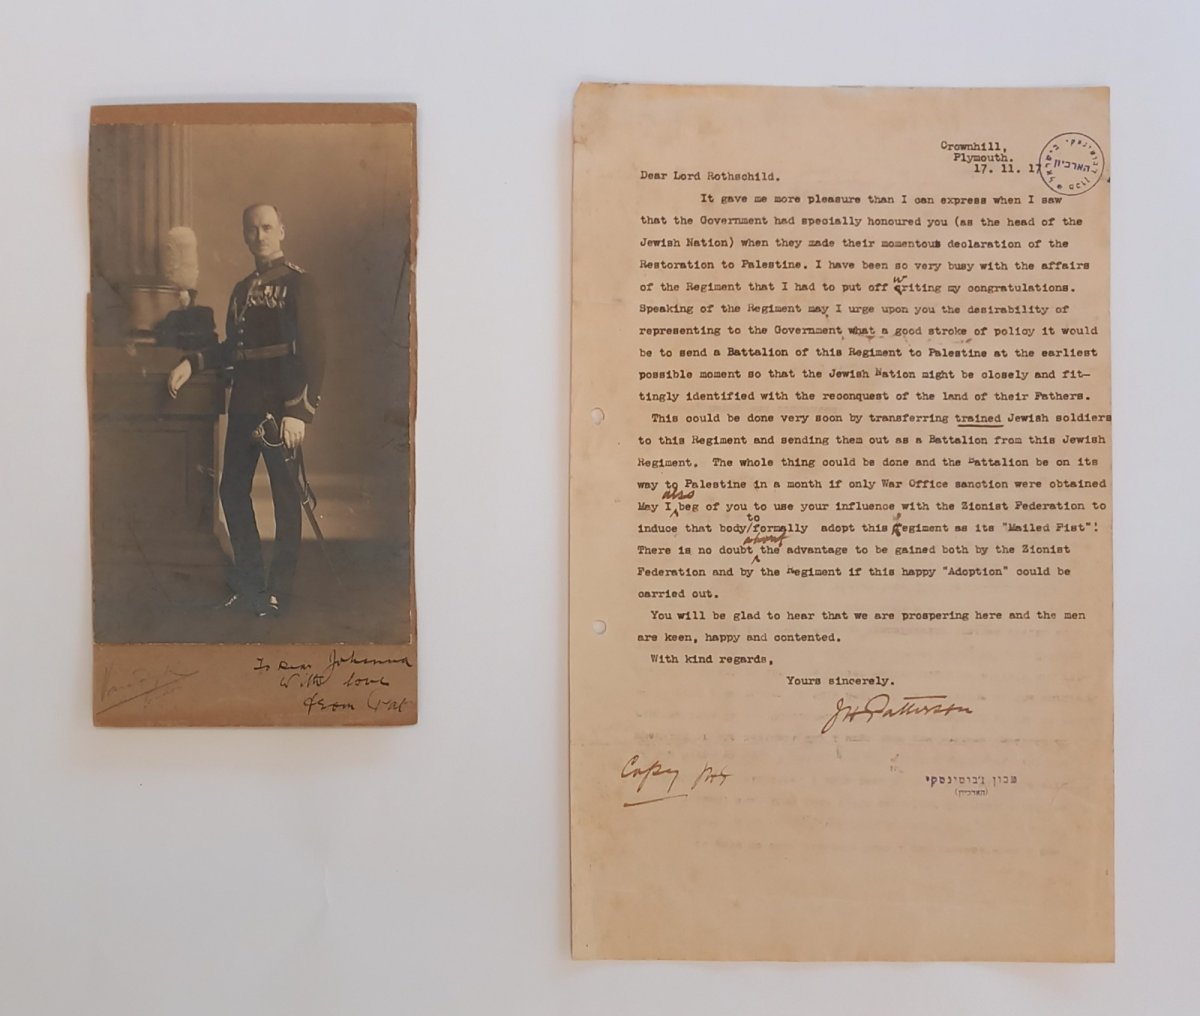 To Dear Johanna
With love
from Pat
Crownhill,
Plymouth.
17. 11. 17
הארכיון
Dear Lord Rothschild.
It gave me more pleasure than I can express when I saw
that the Government had specially honoured you (as the head of the
Jewish Nation) when they made their momentous declaration of the
Restoration to Palestine. I have been so very busy with the affairs
of the Regiment that I had to put off writing my congratulations.
Speaking of the Regiment may I urge upon you the desirability of
representing to the Government what a good stroke of policy it would
be to send a Battalion of this Regiment to Palestine at the earliest
possible moment so that the Jewish Nation might be closely and fit-
tingly identified with the reconquest of the land of their Fathers.
This could be done very soon by transferring trained Jewish soldiers
to this Regiment and sending them out as a Battalion from this Jewish
Regiment. The whole thing could be done and the Battalion be on its
way to Palestine in a month if only War Office sanction were obtained
May I also beg of you to use your influence with the Zionist Federation to
induce that body/to formally adopt this Regiment as its "Mailed Fist"!
There is no doubt about the advantage to be gained both by the Zionist
Federation and by the Regiment if this happy "Adoption" could be
carried out.
You will be glad to hear that we are prospering here and the men
are keen, happy and contented.
With kind regards,
Yours sincerely.
JH Patterson
Copy
מכון ז'בוטינסקי
(הארכיון)